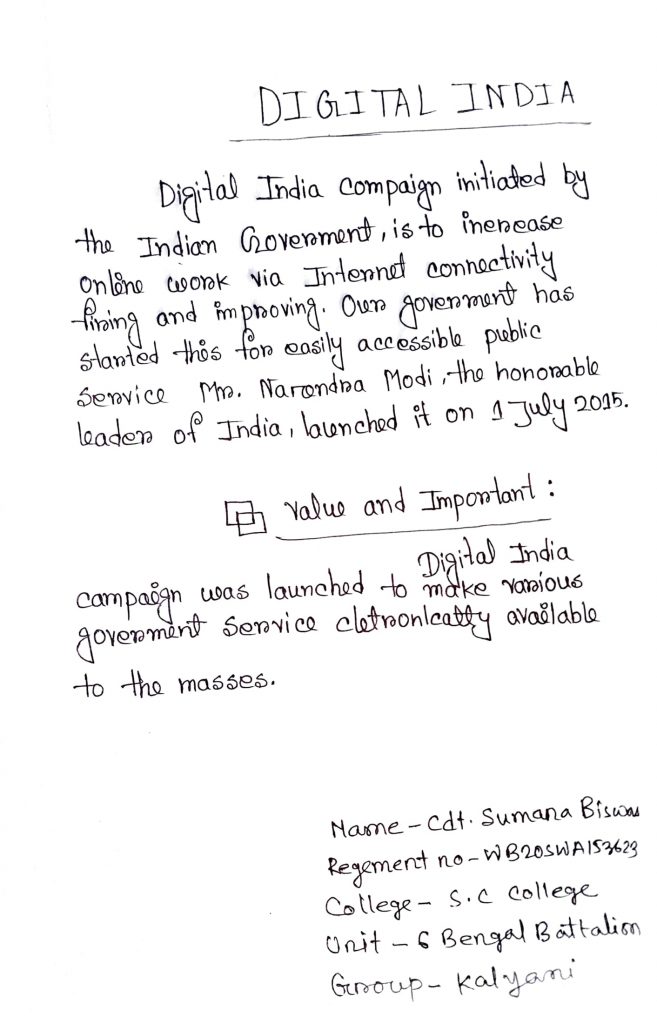 DIGITAL INDIA
Digital India Compaign initiated by
the Indian Goverment, is to increase
online work via Internet connectivity
fining and improving. Our goverment has
started this for easily accessible public
service Mr. Narendra Modi, the honorable
leader of India, launched it on 1 July 2015.
Value and Important :
Digital India
campaign was launched to make various
goverment service cletronlcatty available
to the masses.
Name - Cdt. Sumana Biswas
Regement no - WB20SWA153623
College - S.C College
Unit - 6 Bengal Battalion
Group - Kalyani